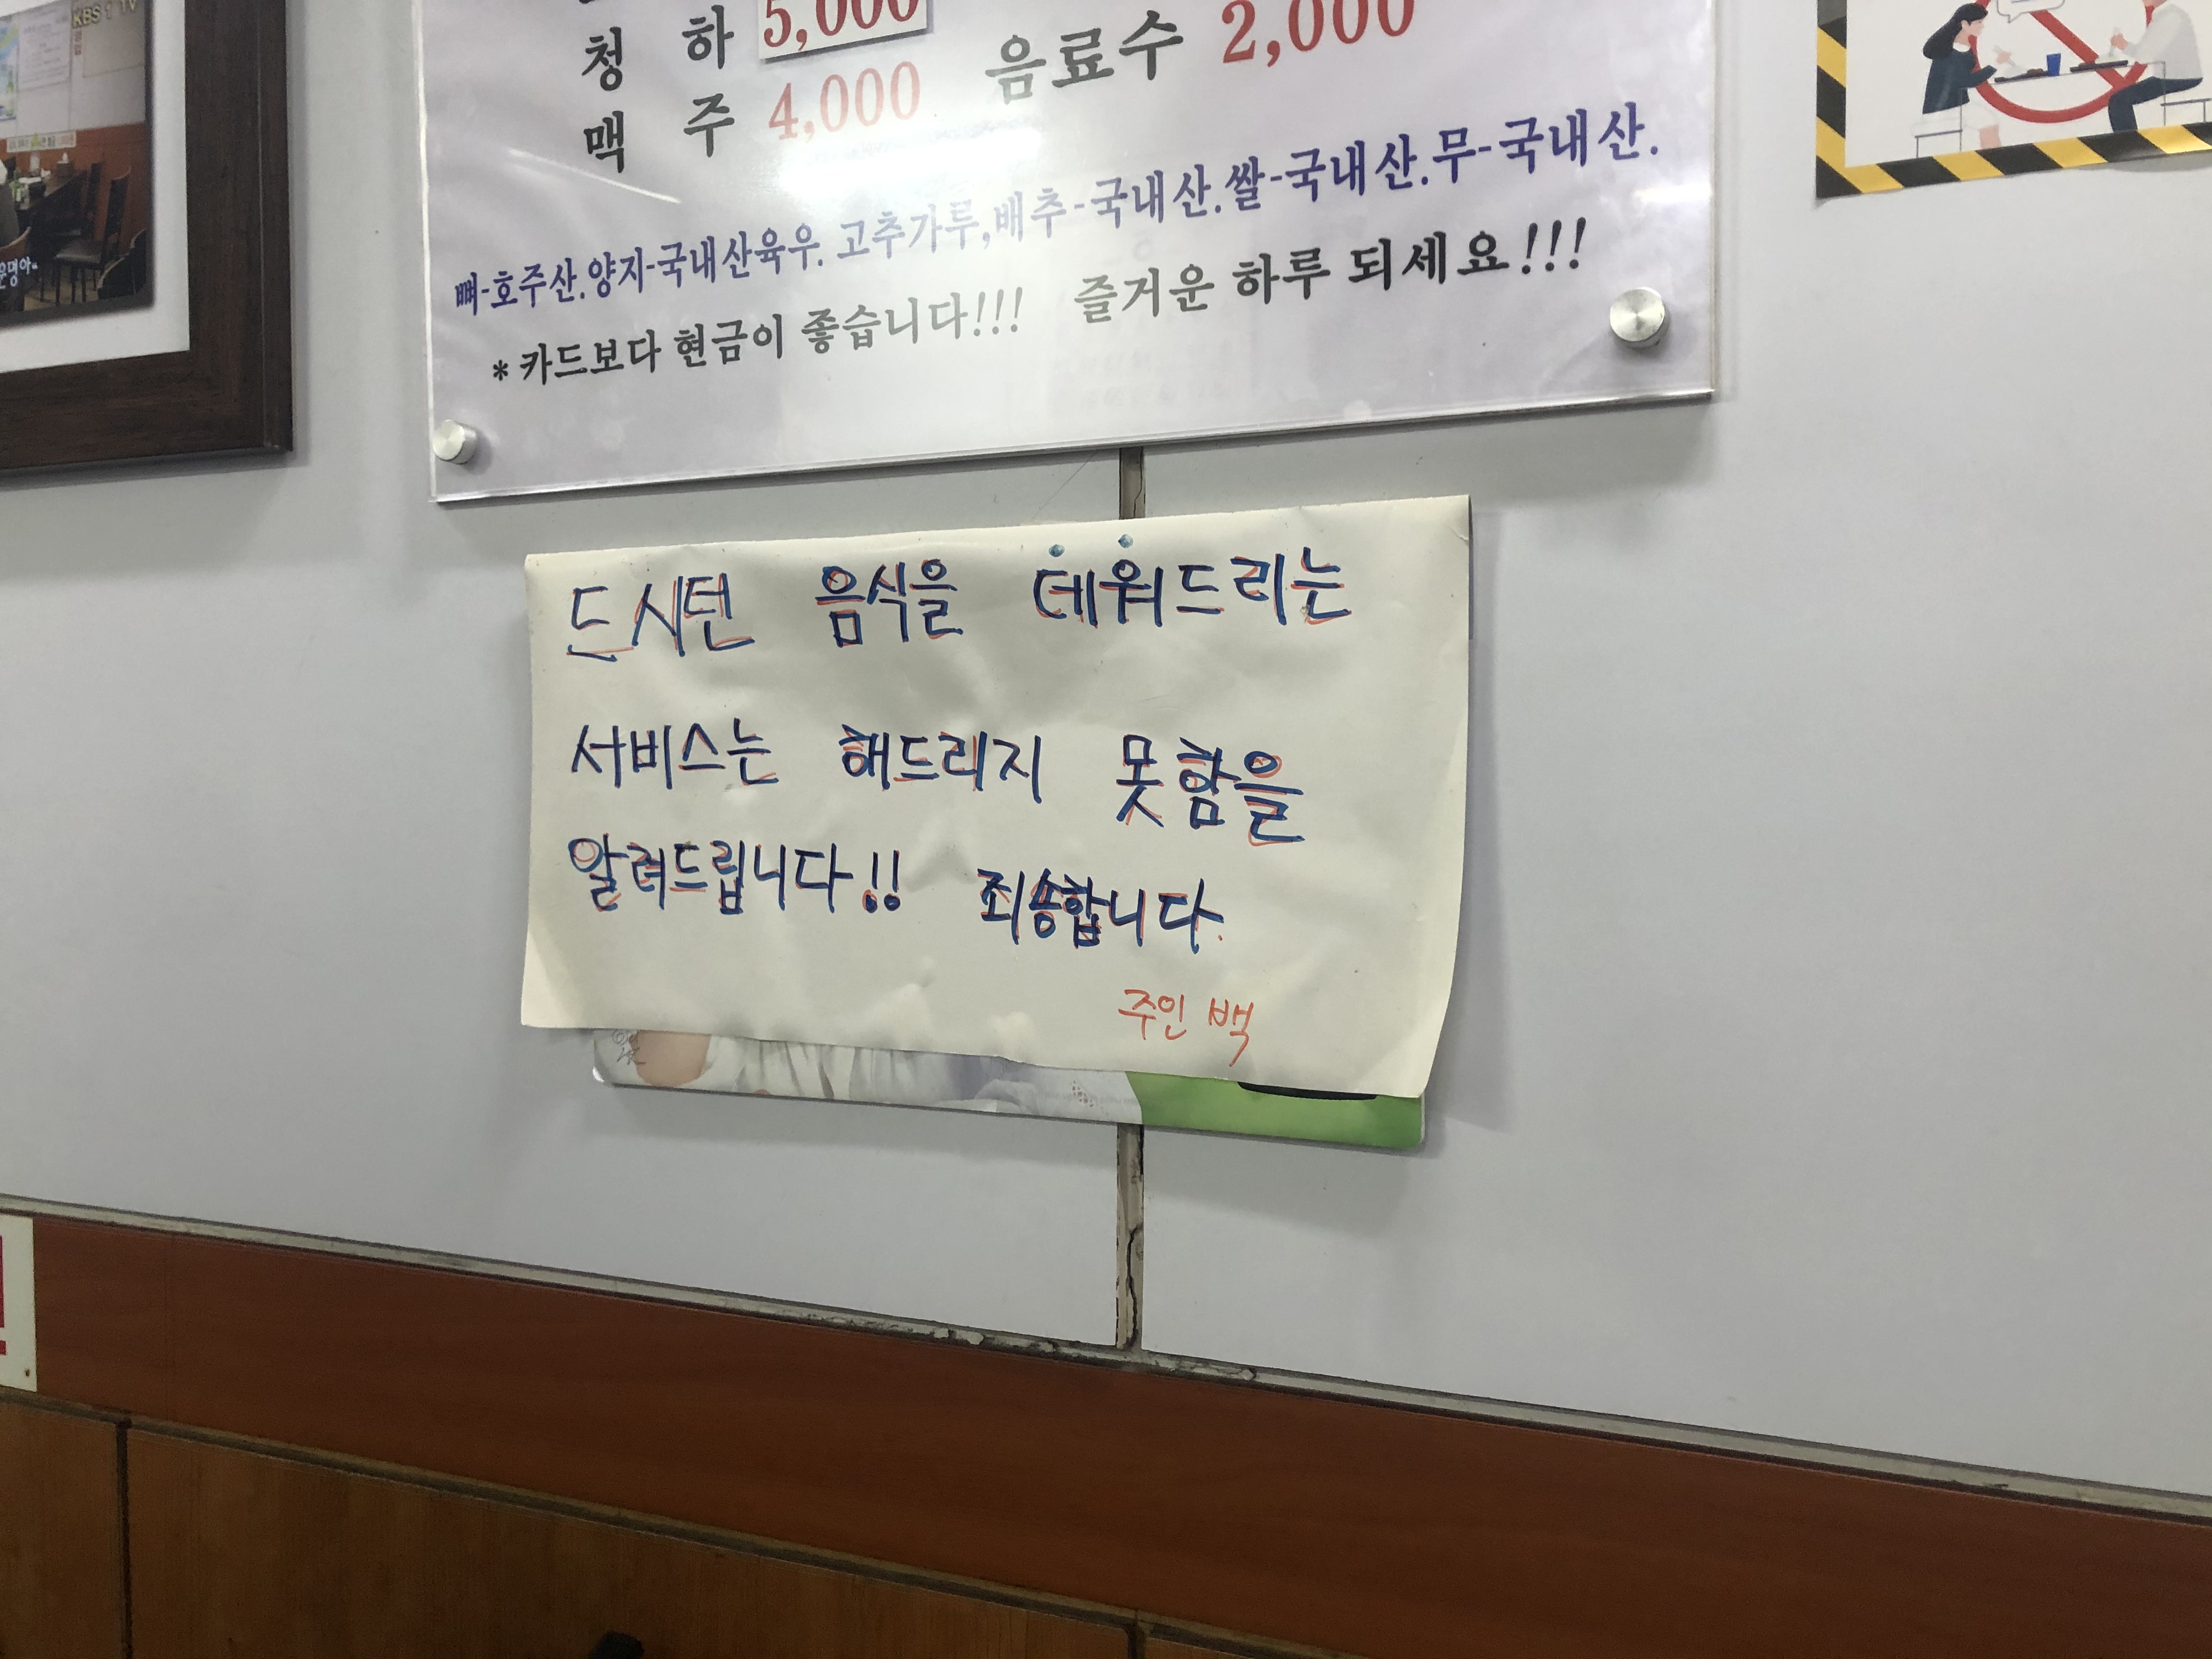 KBS 1 TV
청 하 5,000
맥 주 4,000 음료수 2,000
뼈-호주산.양지-국내산육우. 고추가루,배추-국내산.쌀-국내산.무-국내산.
*카드보다 현금이 좋습니다!!! 즐거운 하루 되세요!!!
드시던 음식을 데워드리는
서비스는 해드리지 못함을
알려드립니다!! 죄송합니다.
주인 백